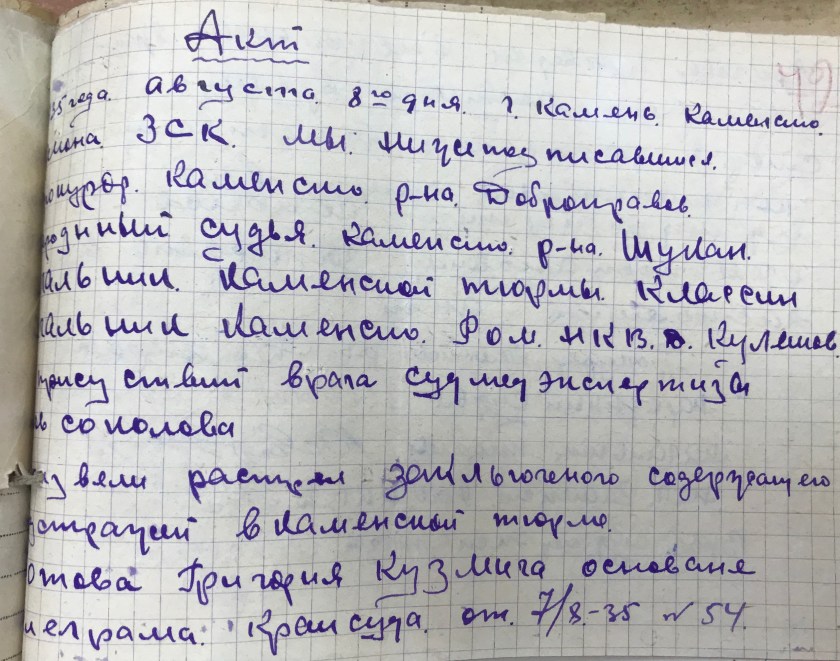 Акт
35 года. августа 8го дня. г. Камень. Каменско.
ЗСК. мы. нижеподписавшиеся.
Каменско. р-на. Добронравов.
судья. Каменско. р-на. Шукан.
Каменской тюрмы. Классин
Каменско. Ром. НКВД. Кулешов
врача судмедэкспертиза
Соколова
вели расщел заключоного содержащего
в Каменской тюрме.
отова Григория Кузмича основаня
елграма. Крайсуда. от. 7/8-35 № 54.